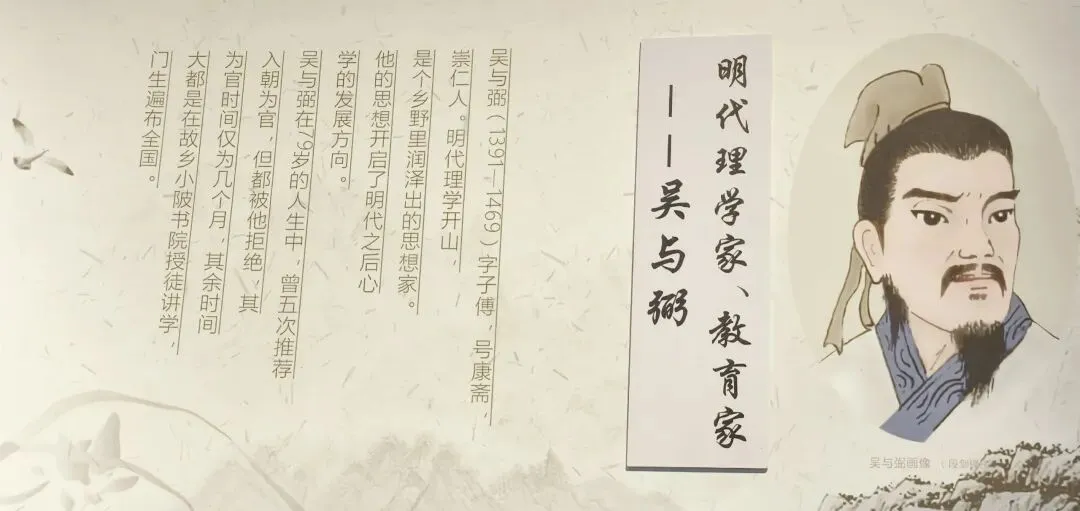 明代理学家、教育家
——吴与弼
吴与弼（1391—1469）字子傅，号康斋，
崇仁人。明代理学开山，
是个乡野里润泽出的思想家。
他的思想开启了明代之后心
学的发展方向。
吴与弼在79岁的人生中，曾五次推荐
入朝为官，但都被他拒绝，其
为官时间仅为几个月，其余时间
大都是在故乡小陂书院授徒讲学，
门生遍布全国。
吴与弼画像